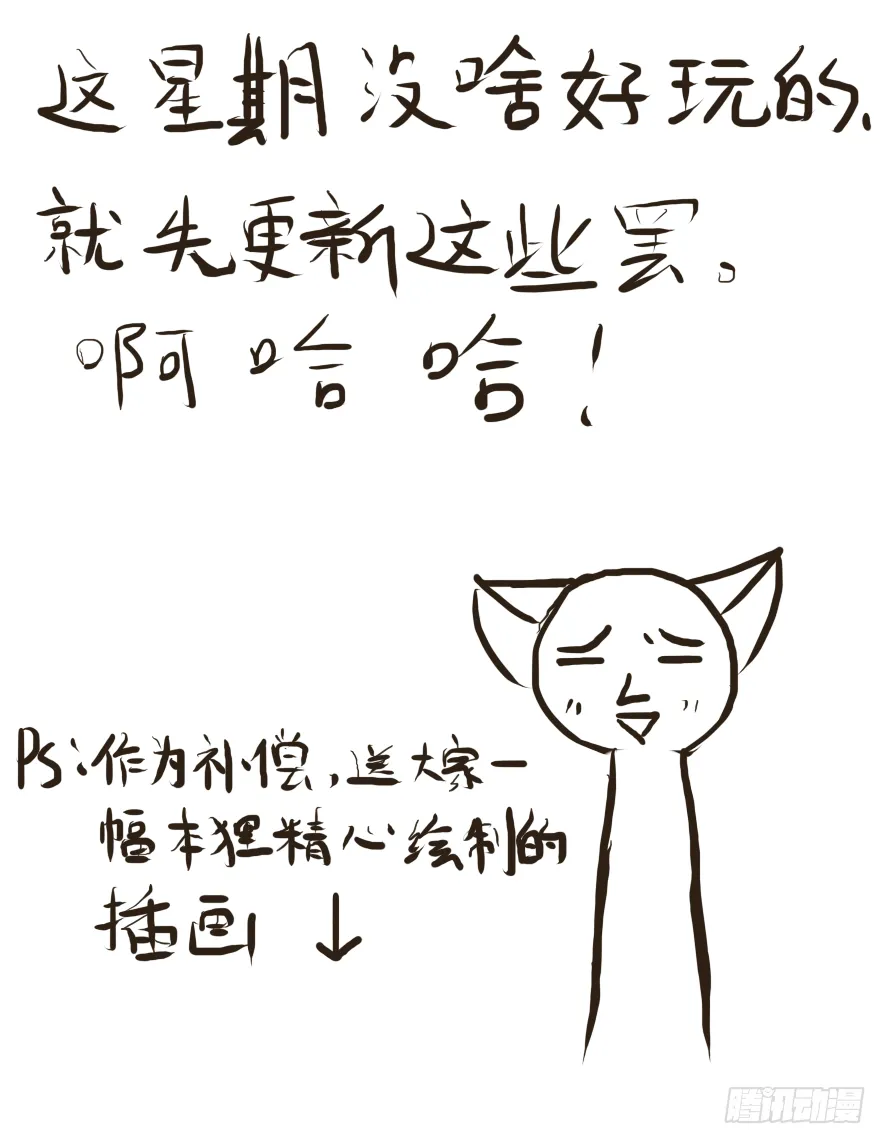 这星期没啥好玩的、
就先更新这些罢。
啊哈哈！
Ps:作为补偿，送大家一
幅本狸精心绘制的
插画 ↓
腾讯动漫